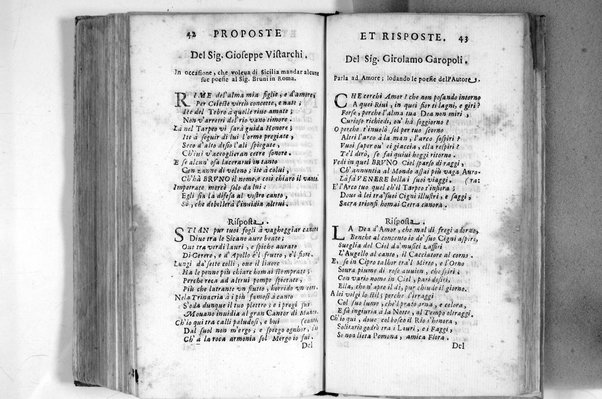 42 PROPOSTE
Del Sig. Gioseppe Vistarchi.
In occasione, che voleva di Sicilia mandar alcune
sue poesie al Sig. Bruni in Roma.
RIME de l'alma mia figlie, e d'amore,
Per Celeste virtù concette, e nate;
dre del Tebro à quelle rive amate;
Non v'arresti del rio vano timore.
Là nel Tarpeo vi sarà guida Honore;
Itè à seguir di lui l'orme pregiate,
Se co d'alto desio l'ali spiegate,
Ch'ivi v'accoglieran cerre sonore.
E se alcun' osa lacerarvi in tanto
Con zanne di veleno, itè à colui,
C'hà BRUNO il nome, e così chiaro il vanto.
Imperate mercè solo da lui:
Egli sia la difesa al vostro canto,
Sò, che debellerà l'invidia altrui.
Risposta.
STIAN pur tuoi fogli à vagheggiar cantiti
Dive tra le Sicane aure beate;
Ove tra verdi lauri, e spiche aurate
Di Cerere, e d'Apollo è 'l frutto, e 'l fiore.
Lungi da' sette colli, one il livore
Ha le penne più chiare homai stemprate;
Perche reca ad alteri pompe spierate,
Più che latrante un furto, horrido un
Ne la Trinacria è i più famosi à canto
S'oda dunque il tuo pletro; e i pregi tui
Movano invidia al gran Cantor di Manto.
Ch'io qui tra calli paludosi, e bui
Dal suol non m'ergo; e spiego ogn'hor, in
Ch'à la roca armonia sol Mergo io fui.
Del
ET RISPOSTE. 43
Del Sig. Girolamo Garopoli.
Parla ad Amore; lodando le poesie dell'Autore.
CHE cerchi Amor? che non posando intorno
A quei Rivi, in quei fior ti lagni, e giri?
Forse, perche l'alma tua Dea non miri,
Curioso richiedi, ov' hà soggiorno?
O perche t'involò sei per tuo scorno
Altri l'arco à la man, l'arco sospiri?
Vuoi saper ov' ei giaccia, ella respiri?
Te 'l dirò, se fai quindi hoggi ritorno.
Vedi in quel BRUNO Ciel sparso di raggi,
Ch'annuntia al Mondo assai più vaga Auro-
Là fà VENERE bella i suoi viaggi ra:
E l'Arco tuo quel ch'il Tarpeo t'insora;
Dove à lei tra'suoi Cigni illustri, e saggi,
Sacra trionfi homai Cetra canora.
Risposta.
LA Dea d'Amor, che mal di fregi adorno,
Benche al concento ie de' suoi Cigni aspiri,
Sveglia del Ciel da' musci Lassiri
L'Augello al canto, il Cacciatore al corno.
E, se in Cipro talhor tra'l Mirto, e l'Orno
Scura piume di rose avuien, che spiri;
Con vario nome in Ciel, par desiri,
Ella, che n'apre il dì, pur chiude il giorno.
A lei volgi lo stil; perche l'erraggi
Col suo lume, che 'l prato orna, e colora,
E sà ingiuria à la Notte, al Tempo oltraggi.
Ch'io qui, dove col bosco il Rio s'honora,
Solitario godrò tra i Lauri, e i Faggi,
Se non lieta Pomona, amica Flora.
Del